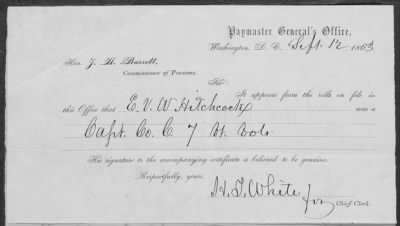 Paymaster General's Office,
Washington, D. C. Sept. 12, 1863
Hon. J. H. Barrett,
Commissioner of Pensions.
Sir:
It appears from the rolls on file in
this Office that E. V. W Hitchcock was a
Capt. Co. C 7 Vt. Vols
His signature to the accompanying certificate is believed to be genuine.
Respectfully, yours,
H. J. White
for Chief Clerk.